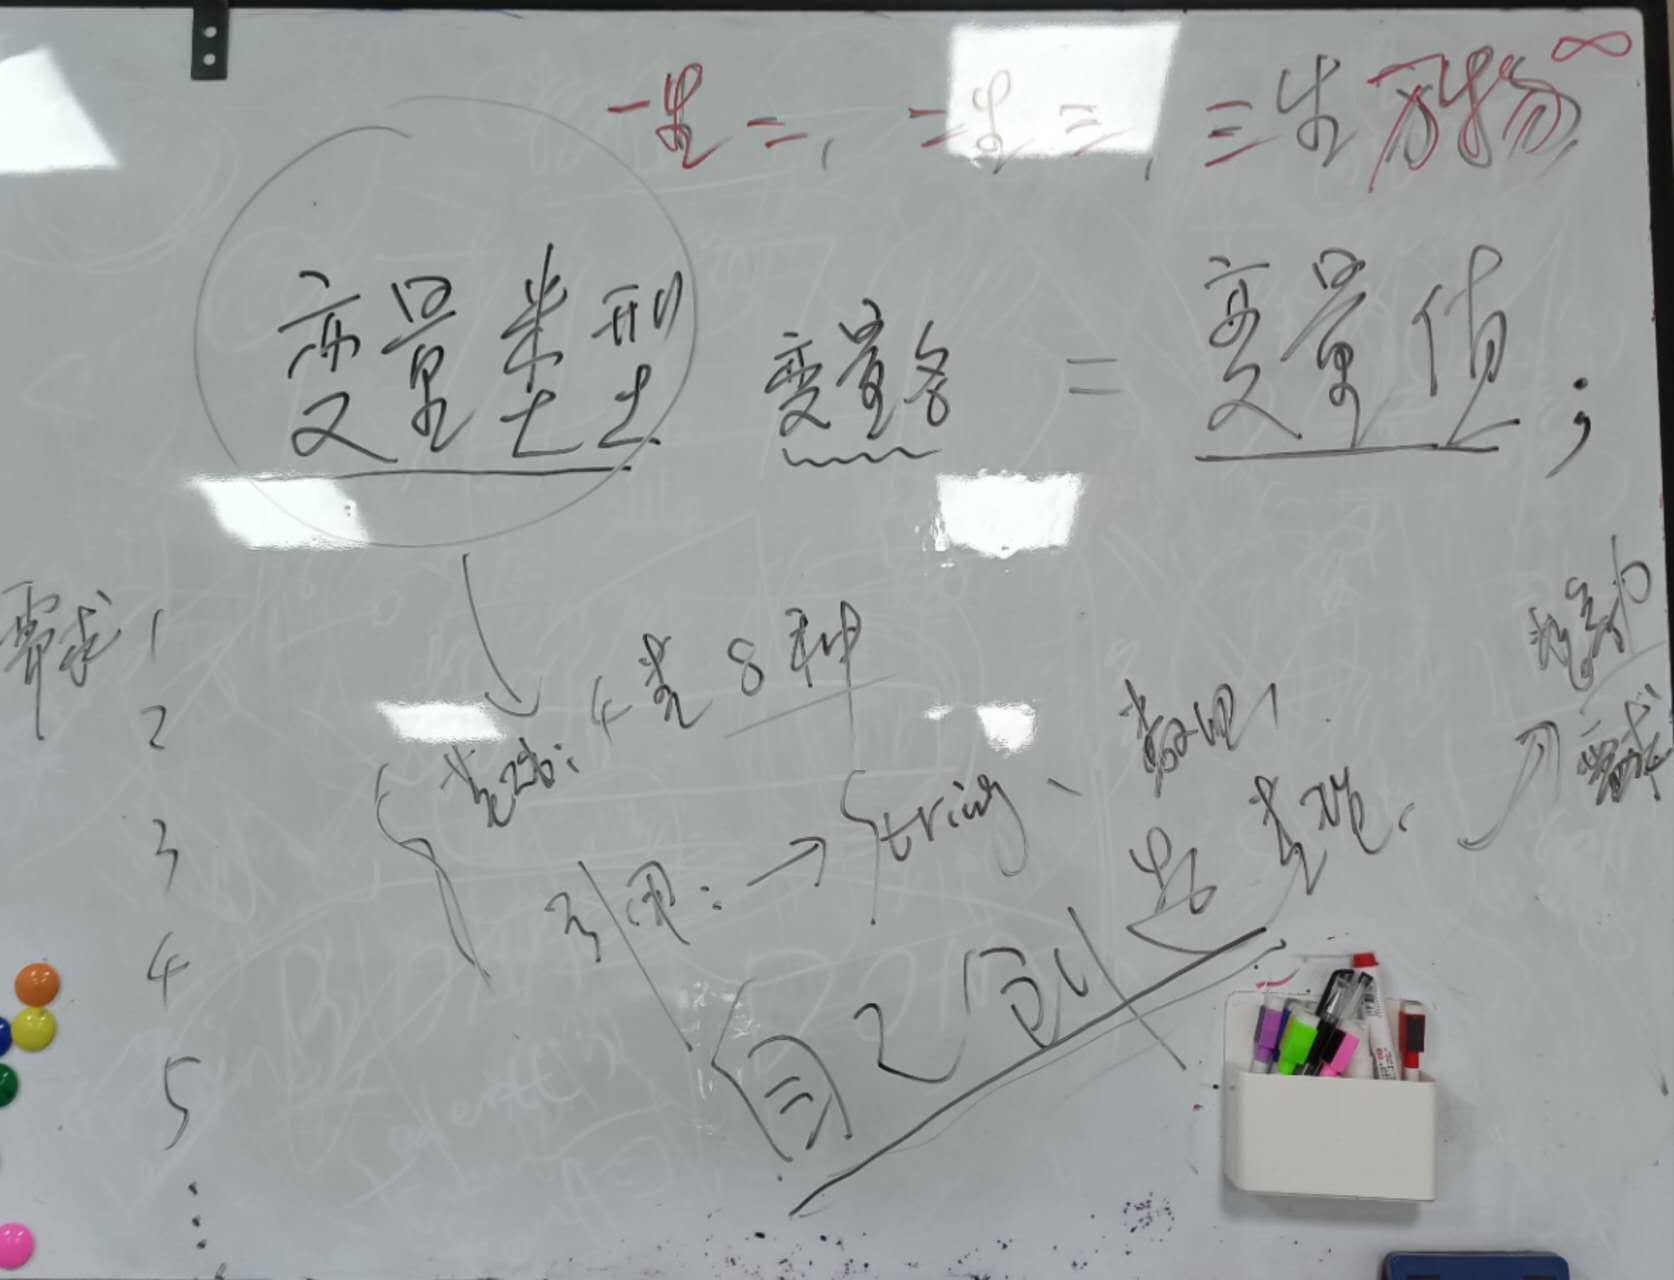 一生二, 二生三, 三生万物 ∞
变量类型 变量名 = 变量值;
需求 1
2
3
4
5
基础: 4类8种
引用: → String、数组、
自己创造类型.
需求